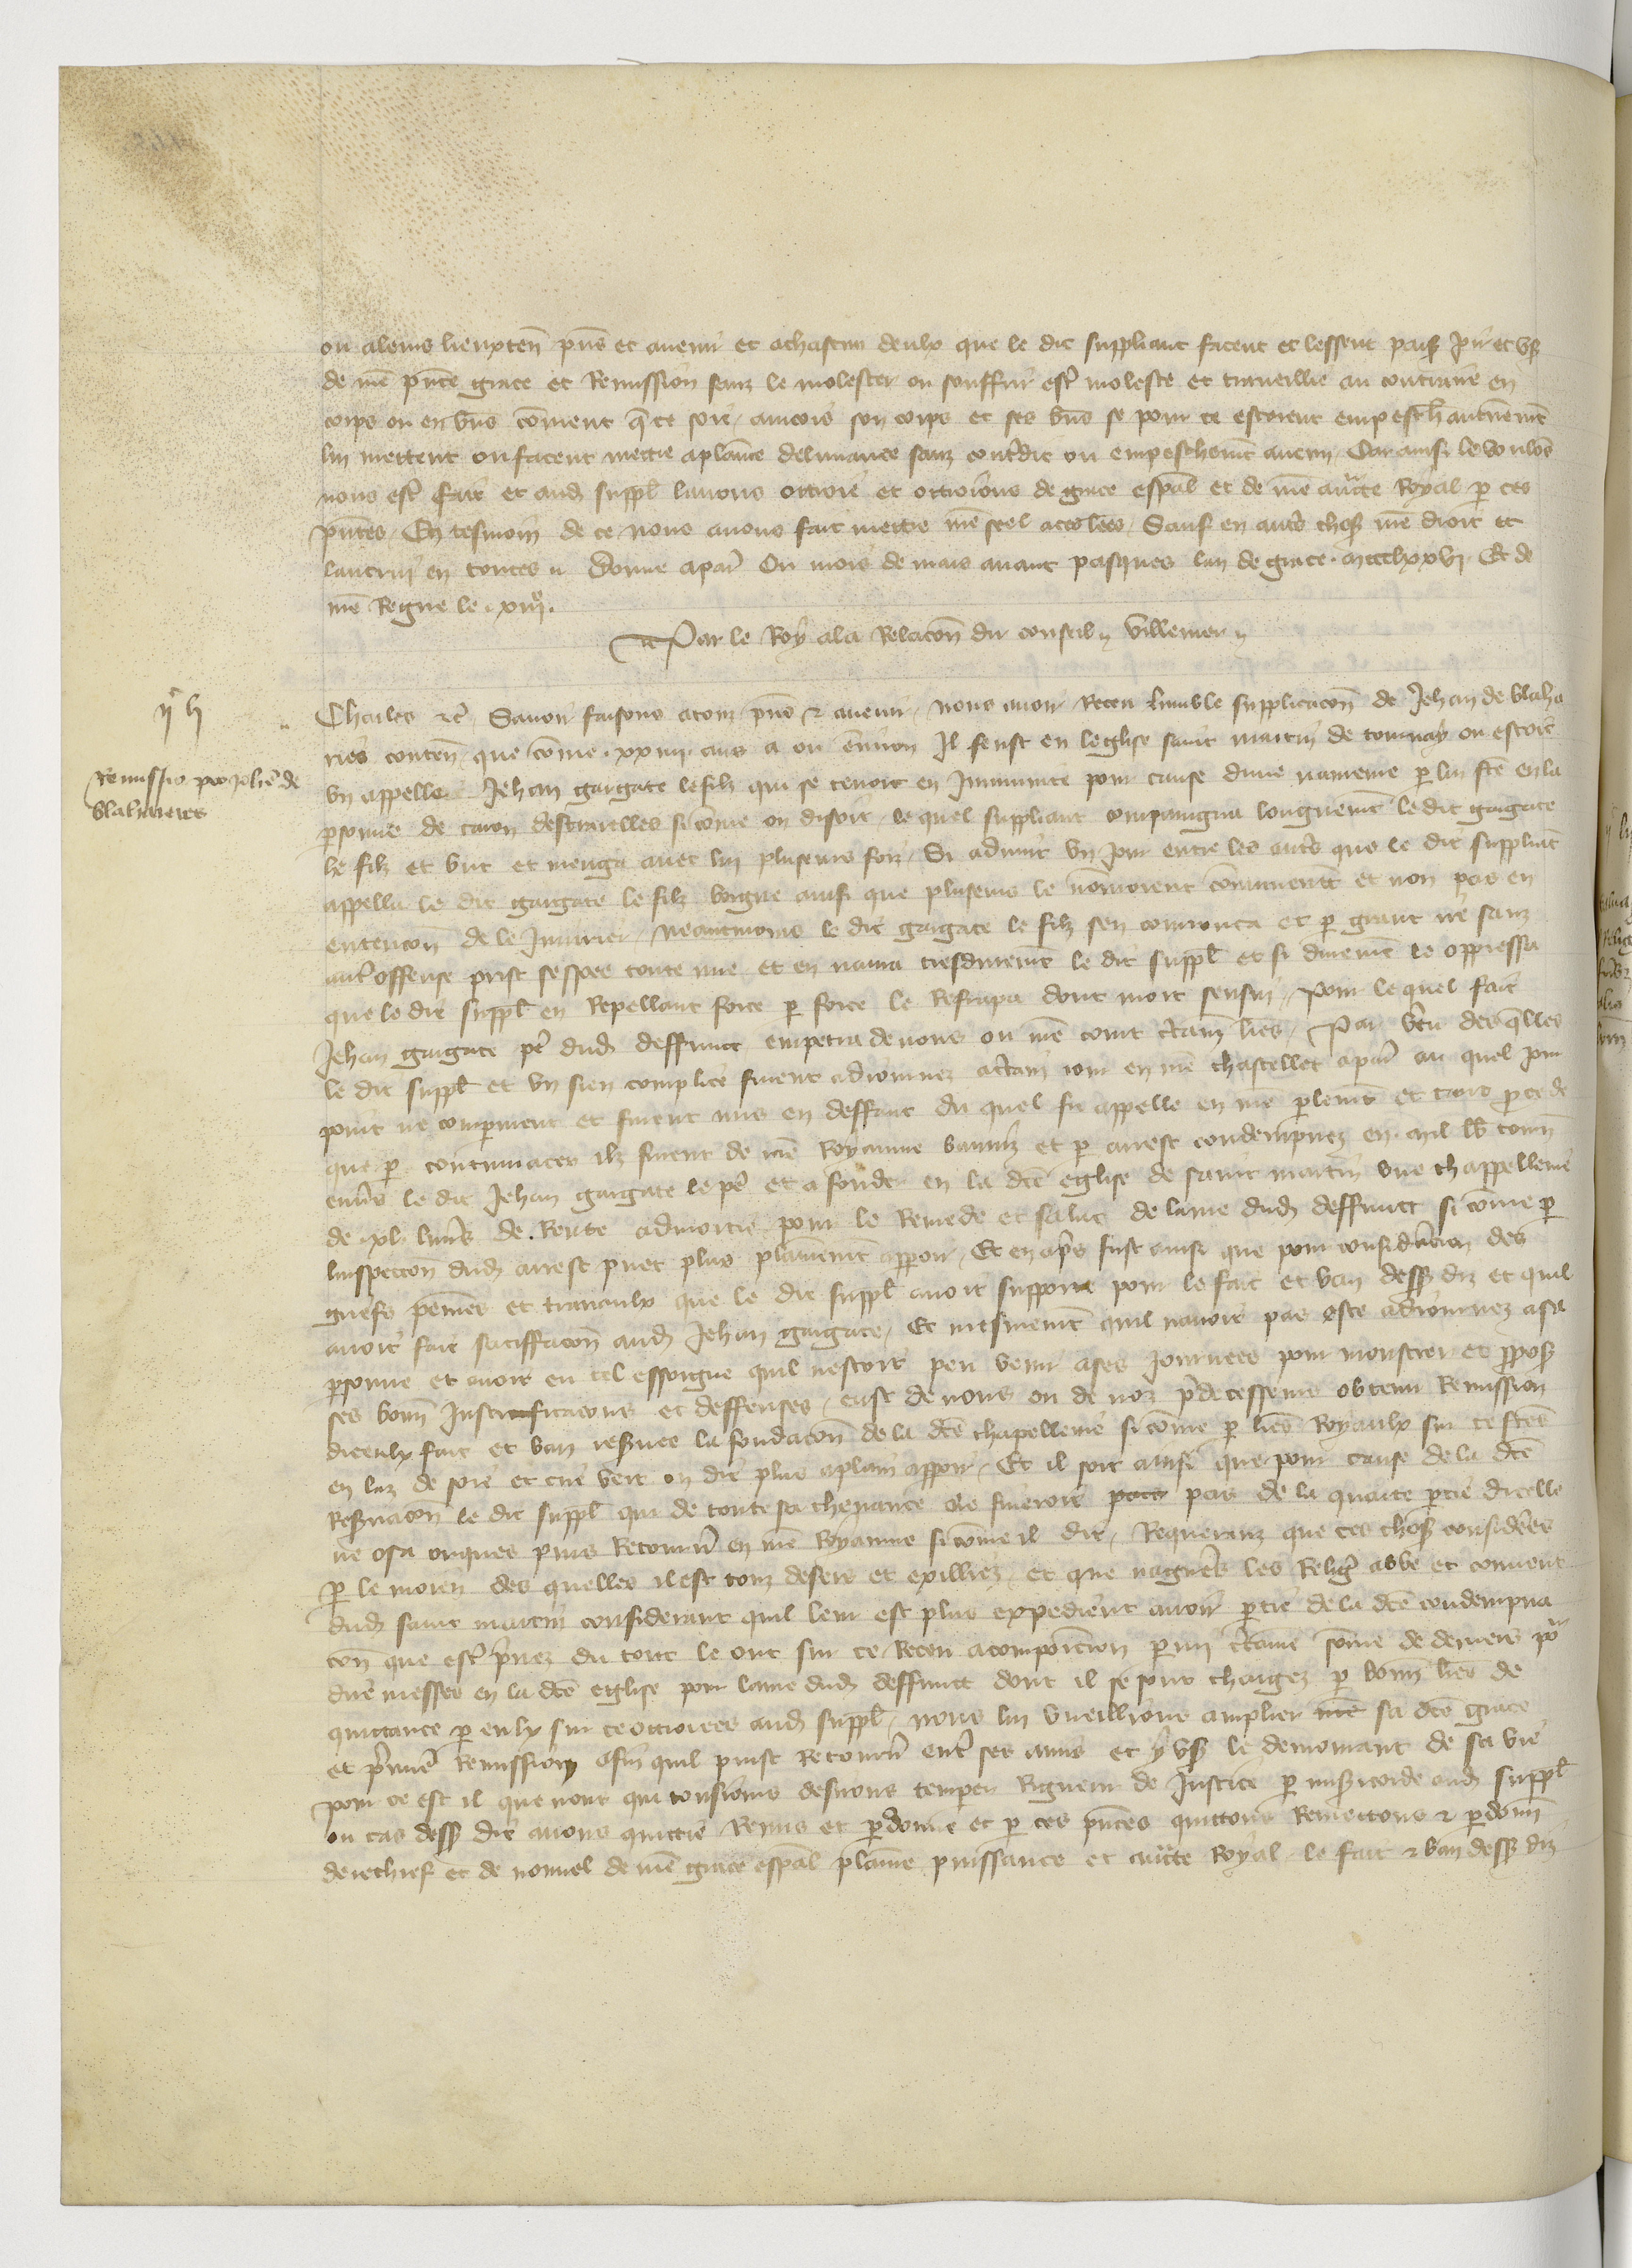 ou a leurs lieuxten̄ pn̄s et avenir et a chascun deulx que le dit suppliant facent et lessent paisib̄ joir et us̄
de nr̄e pn̄te grace et Remission sanz le molester ou souffrir estr̄ moleste et traveillie au contraire en
corps ou en biens com̄ent q̄ ce soit, aincois son corps et ses bn̄s se pour ce estoient empeschiez autremēt
lui mettent ou facent mettre a plaīne delivrance sanz contr̄dit ou empeschemēt aucun. Car ainsi le voulōs
nous estr̄ fait et aud̄ suppl̄ lavons ottroie et ottroions de grace esp̄al et de nr̄e auctīte Royal p̄ ces
pn̄tes. En tesmoin de ce nous avons fait mettre nr̄e seel a ces l̄res, Sauf en autr̄s choses nr̄e droit et
lautrui en toutes. Donne a par̄ ou mois de mars avant pasques lan de grace mccclxxvi. Et de
nr̄e Regne le xiiiᵉ.
Par le Roy a la Relacōn du conseil. Villemer.
Charles etc̄. Savoir faisons a touz pn̄s et avenir, nous avoir Receu lumble supplicacōn de Jehan de Vlah'a
ries conten̄ que cōme xxiiii ans a ou environ Il feust en leglise saint martin de tournay ou estoit
Remissio pro Joh̄e de
Vlah'aries
un appelle Jehan gargate le filz qui se tenoit en Immunite pour cause dune navreure p̄ lui fc̄e en la
p̄sonne de caron destravelles si cōme on disoit, le quel suppliant compaigna longuemēt le dit gargate
le filz et but et menga avec lui pluseurs foiz. Si advint un jour entre les autr̄s que le dit suppliant
appella le dit gargate le filz borgne ainsi que pluseurs le nōmoient cōmunemēt et non pas en
entencōn de le Injurier, neantmoins le dit gargate le filz sen courrouca et p̄ grant ire sanz
autr̄ offense prist sespee toute nue et en navra tresduremēt le dit suppl̄ et si duremēt le oppressa
que le dit suppl̄ en Repellant force p̄ force le Refrapa dont mort sensui. Pour le quel fait
Jehan gargate per̄ dud̄ deffunct empetra de nous ou nr̄e court c̄tain̄ l̄res. Par vertu desq̄lles
le dit suppl̄ et un sien complice furent adiournez a c̄tain jour en nr̄e chastellet a par̄ au quel jour
point ne comparurent et furent mis en deffaut du quel fu appelle en nr̄e p̄lemēt et tant p̄cede
que p̄ contumaces ilz furent de nr̄e Royaume banniz et p̄ arrest condempnez en mil lb̄ tourn̄
envers le dit Jehan gargate le per̄ et a fonder en la dc̄e eglise de saint martin une chappellenie
de xl livres de Rente admortie pour le Remede et salut de lame dud̄ deffunct si cōme p̄
linspeccōn dud̄ arrest puet plus plainemēt apparoir. Et en apr̄s fust ainsi que pour consideracion des
griefs peines et travaulx que le dit suppl̄ avoit supporte pour le fait et ban dess̄ diz et quil
avoit fait satiffacōn aud̄ Jehan gargate, Et mesmemēt quil navoit pas este adiournez a sa
p̄sonne et avoit eu tel essoigne quil nestoit peu venir a ses journees pour monstrer et p̄pos̄
ses bonn̄ Justificacions et deffenses, eust de nous ou de noz pr̄decesseurs obtenu Remission
diceulx fait et ban reserv̄ee la fondacōn de la dc̄e chapellenie si cōme p̄ l̄res Royaulx sur ce fc̄es
en laz de soie et cire vert on dit plus a plain apparoir. Et il soit ainsi que pour cause de la dc̄e
Reservacōn le dit suppl̄ qui de toute sa chevance ne fineroit pas de la quarte p̄tie dicelle
ne osa onques puis Retourn̄ en nr̄e Royaume si cōme il dit, Requerant que ces choses considerees
p̄ le moien des quelles il est touz desers et exilliez, et que nagueres les Relig̃ abbe et couvent
dud̄ saint martin considerant quil leur est plus expedient avoir p̄tie de la dc̄e condempna
cōn que estr̄ privez du tout le ont sur ce Receu a composicion p̄mi c̄taine sōme de deniers po'
dire messes en la dc̄e eglise pour lame dud̄ deffunct dont il se sont chargez p̄ bonn̄ l̄res de
quittance p̄ eulx sur ce ottroiees aud̄ suppl̄, nous lui vueillions amplier sa dc̄e grace
et pr̄miere Remission afin quil puist Retourn̄ entr̄ ses amis et y us̄ le demourant de sa vie
pour ce est il que nous qui tousiours desirons temper̄ Rigueur de Justice p̄ misericorde aud̄ suppl̄
ou cas dess̄ dit avons quittie Remis et p̄donne et p̄ ces pn̄tes quittons Remettons et p̄donn̄
derechief et de nouvel de nr̄e grace esp̄al plaīne puissance et auctīte Royal le fait et ban dess̄ diz